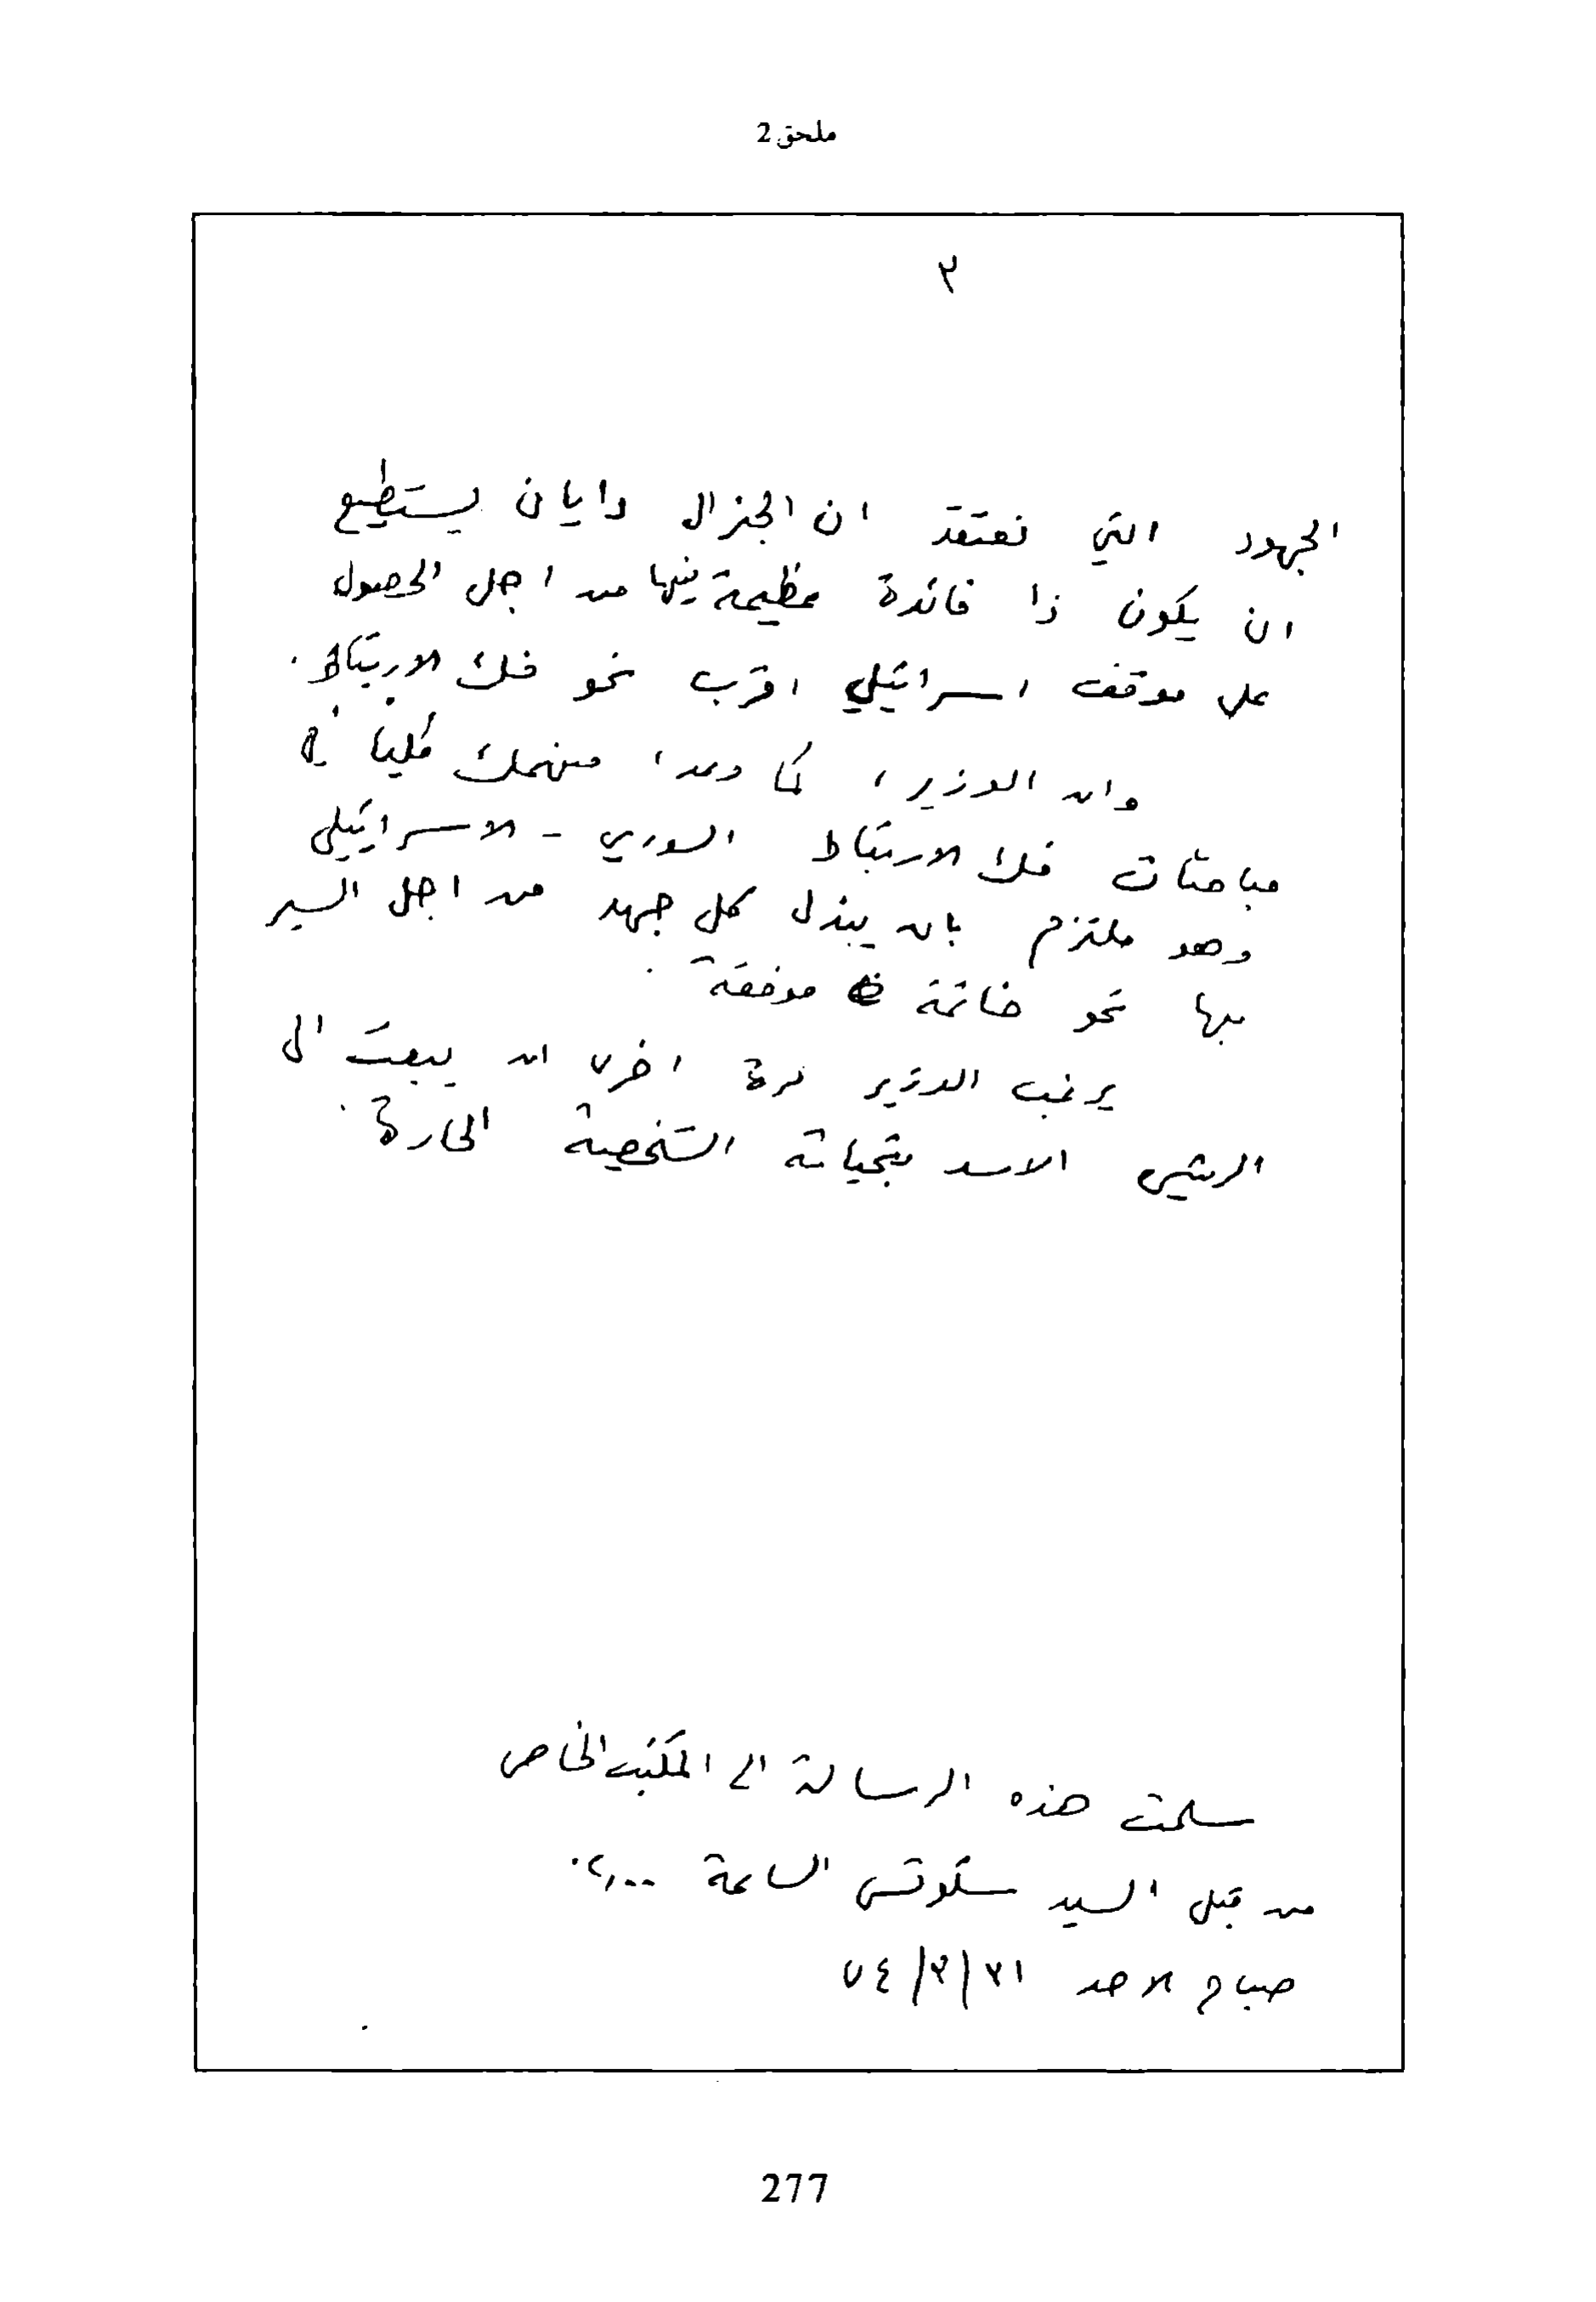 ملحق 2
٢
الجهود التي نعتقد ان الجنرال دايان يستطيع
ان يكون ذا فائدة عظيمة فيها من اجل الحصول
على موقف اسرائيلي اقرب نحو فك الارتباط .
وان الوزير ، كما وعد ، منهمك كليا في
مباحثات فك الارتباط السوري - الاسرائيلي
وهو ملتزم بان يبذل كل جهد من اجل السير
بها نحو خاتمة موفقة .
يرغب الوزير مرة اخرى ان يبعث الى
الرئيس الاسد بتحياته الشخصية الحارة .
سلمت هذه الرسالة الى المكتب الخاص
من قبل السيد سكوتس الساعة
صباح الاحد ٣١/٣/٧٤
277